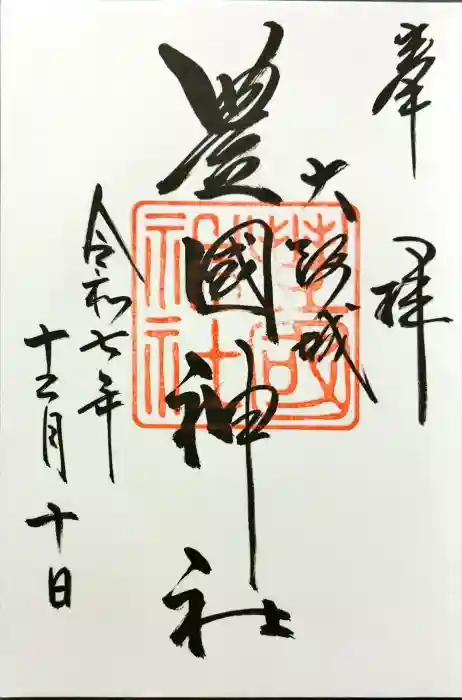 奉
拝
大阪城
豊國神社
豊國神社
令和七年
十二月十日